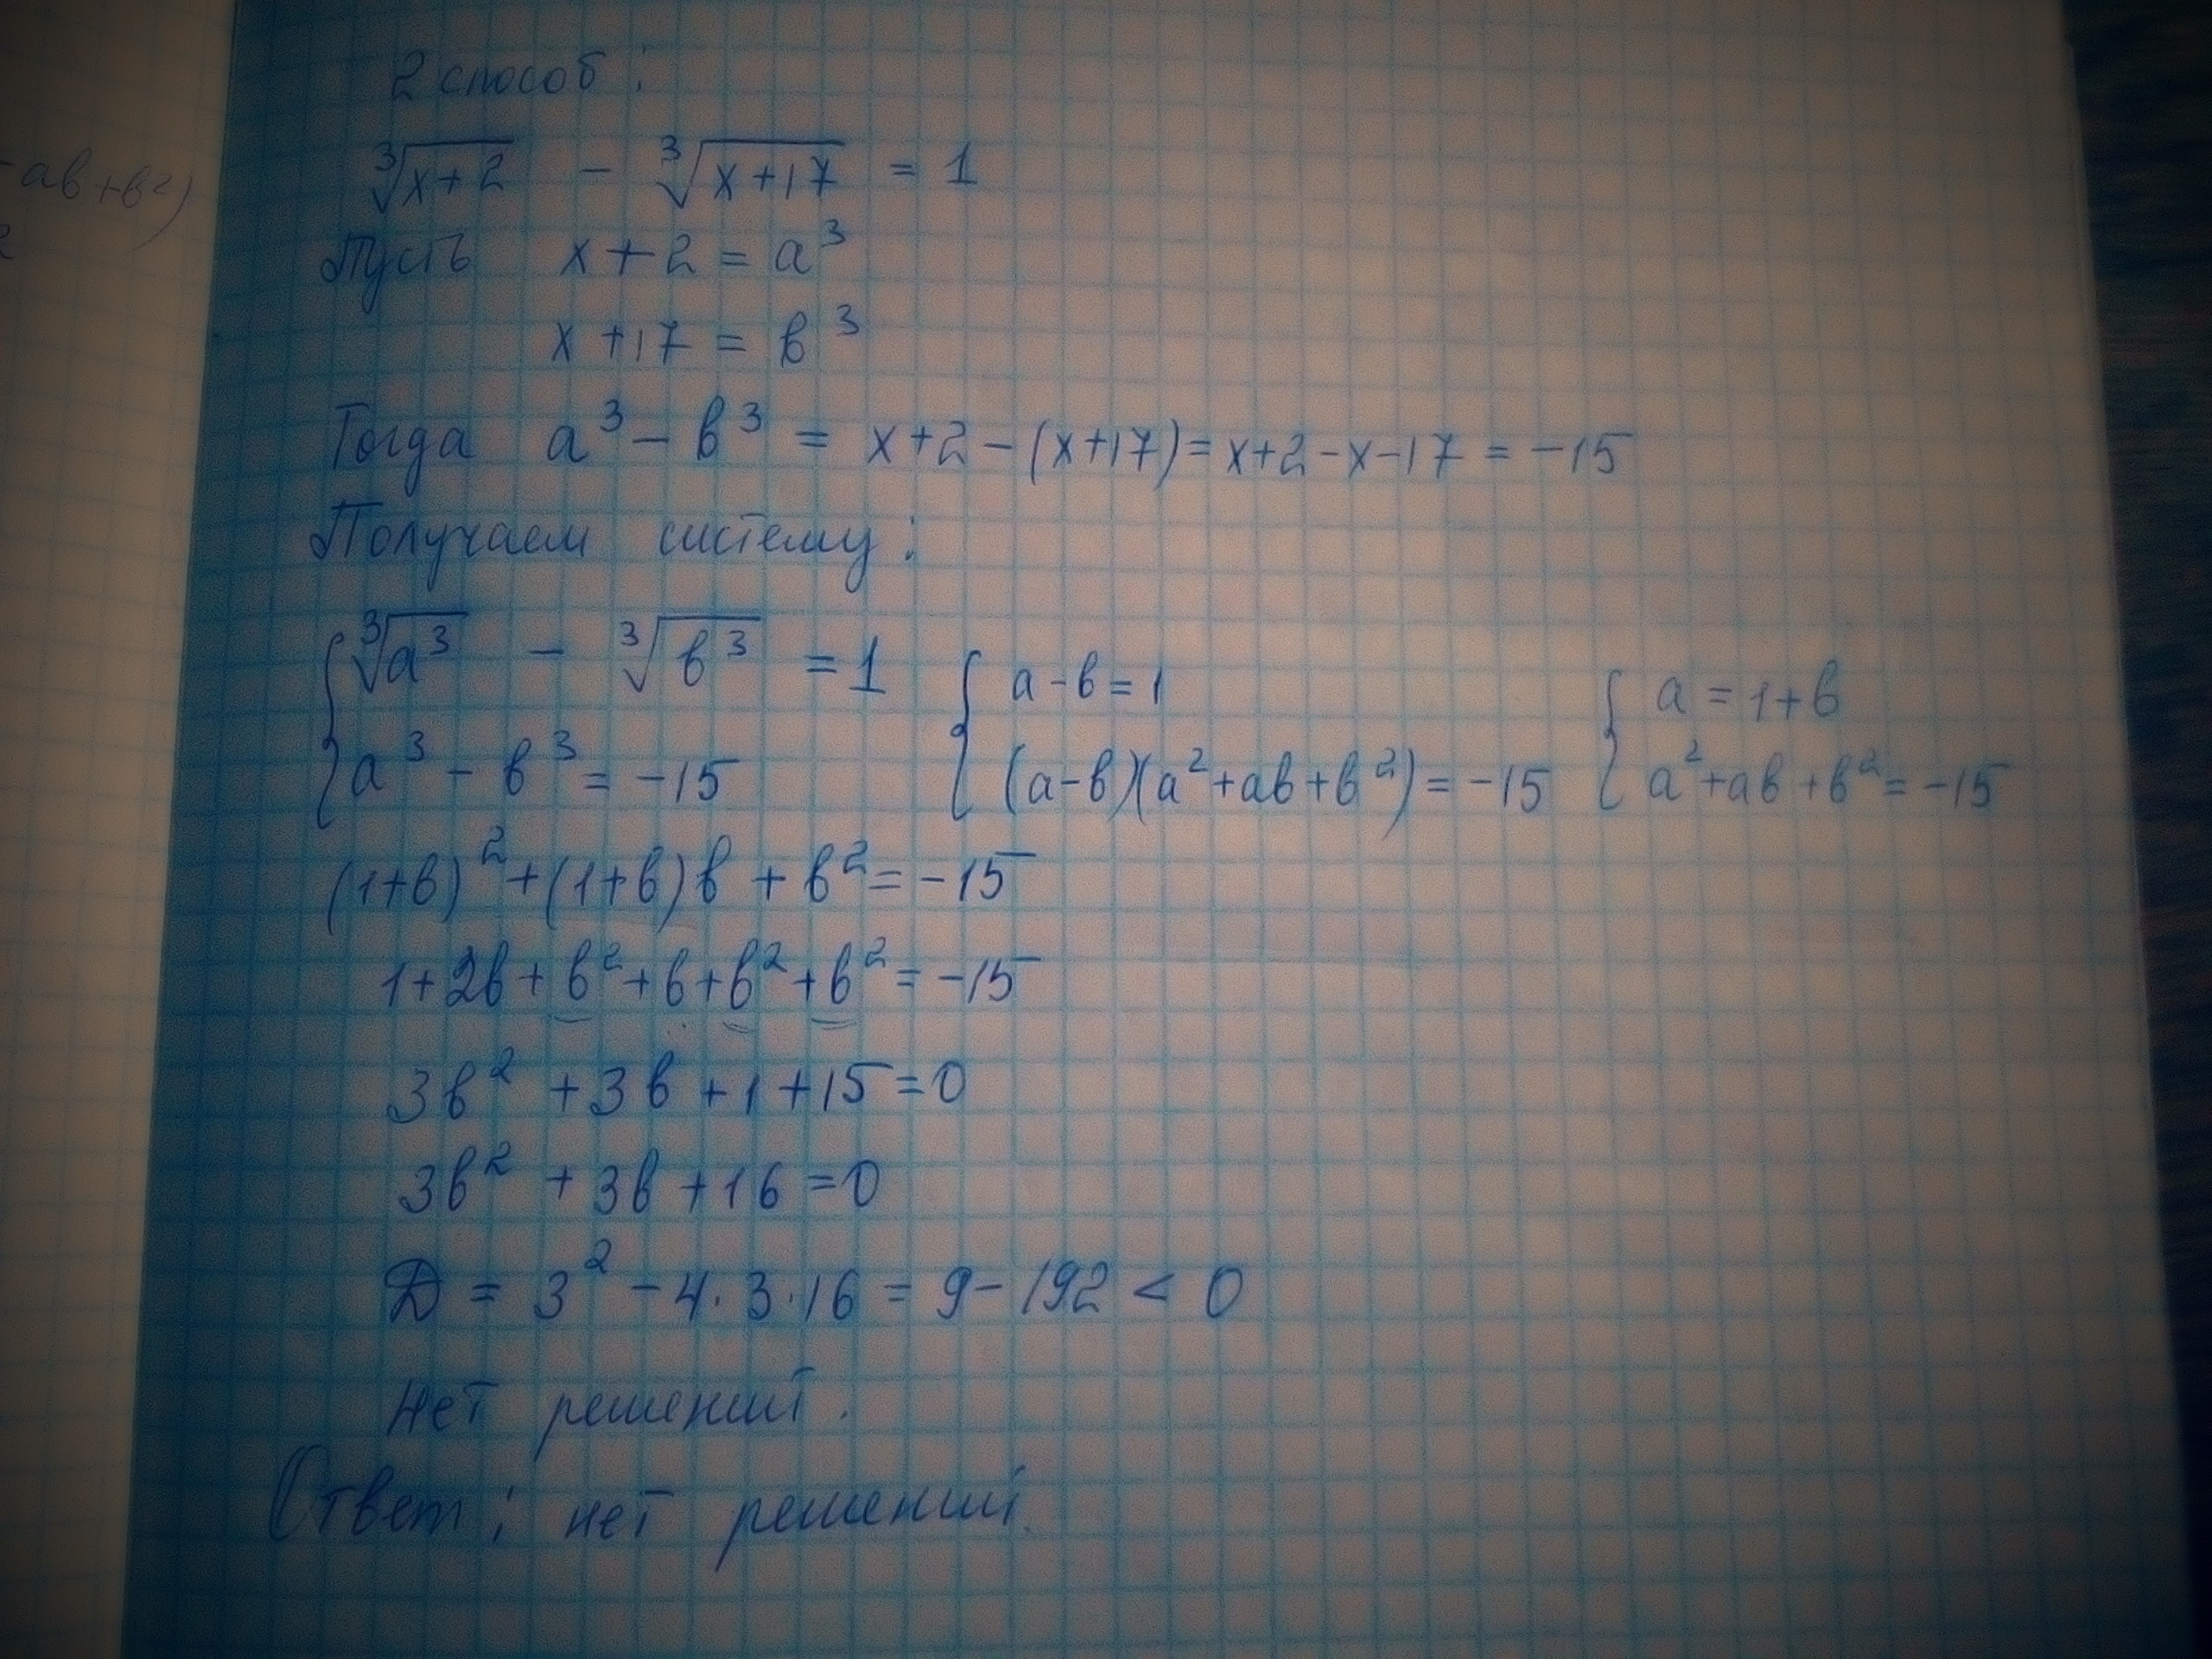 -ab+b²)
2 способ:
∛(x+2) - ∛(x+17) = 1
Пусть x+2 = a³
x+17 = b³
Тогда a³ - b³ = x+2-(x+17) = x+2-x-17 = -15
Получаем систему:
{ ∛(a³) - ∛(b³) = 1 { a-b=1 { a=1+b
{ a³ - b³ = -15 { (a-b)(a²+ab+b²) = -15 { a²+ab+b² = -15
(1+b)²+(1+b)b+b² = -15
1+2b+b²+b+b²+b² = -15
3b²+3b+1+15=0
3b²+3b+16=0
D = 3²-4·3·16 = 9-192 < 0
Нет решений.
Ответ: нет решений.